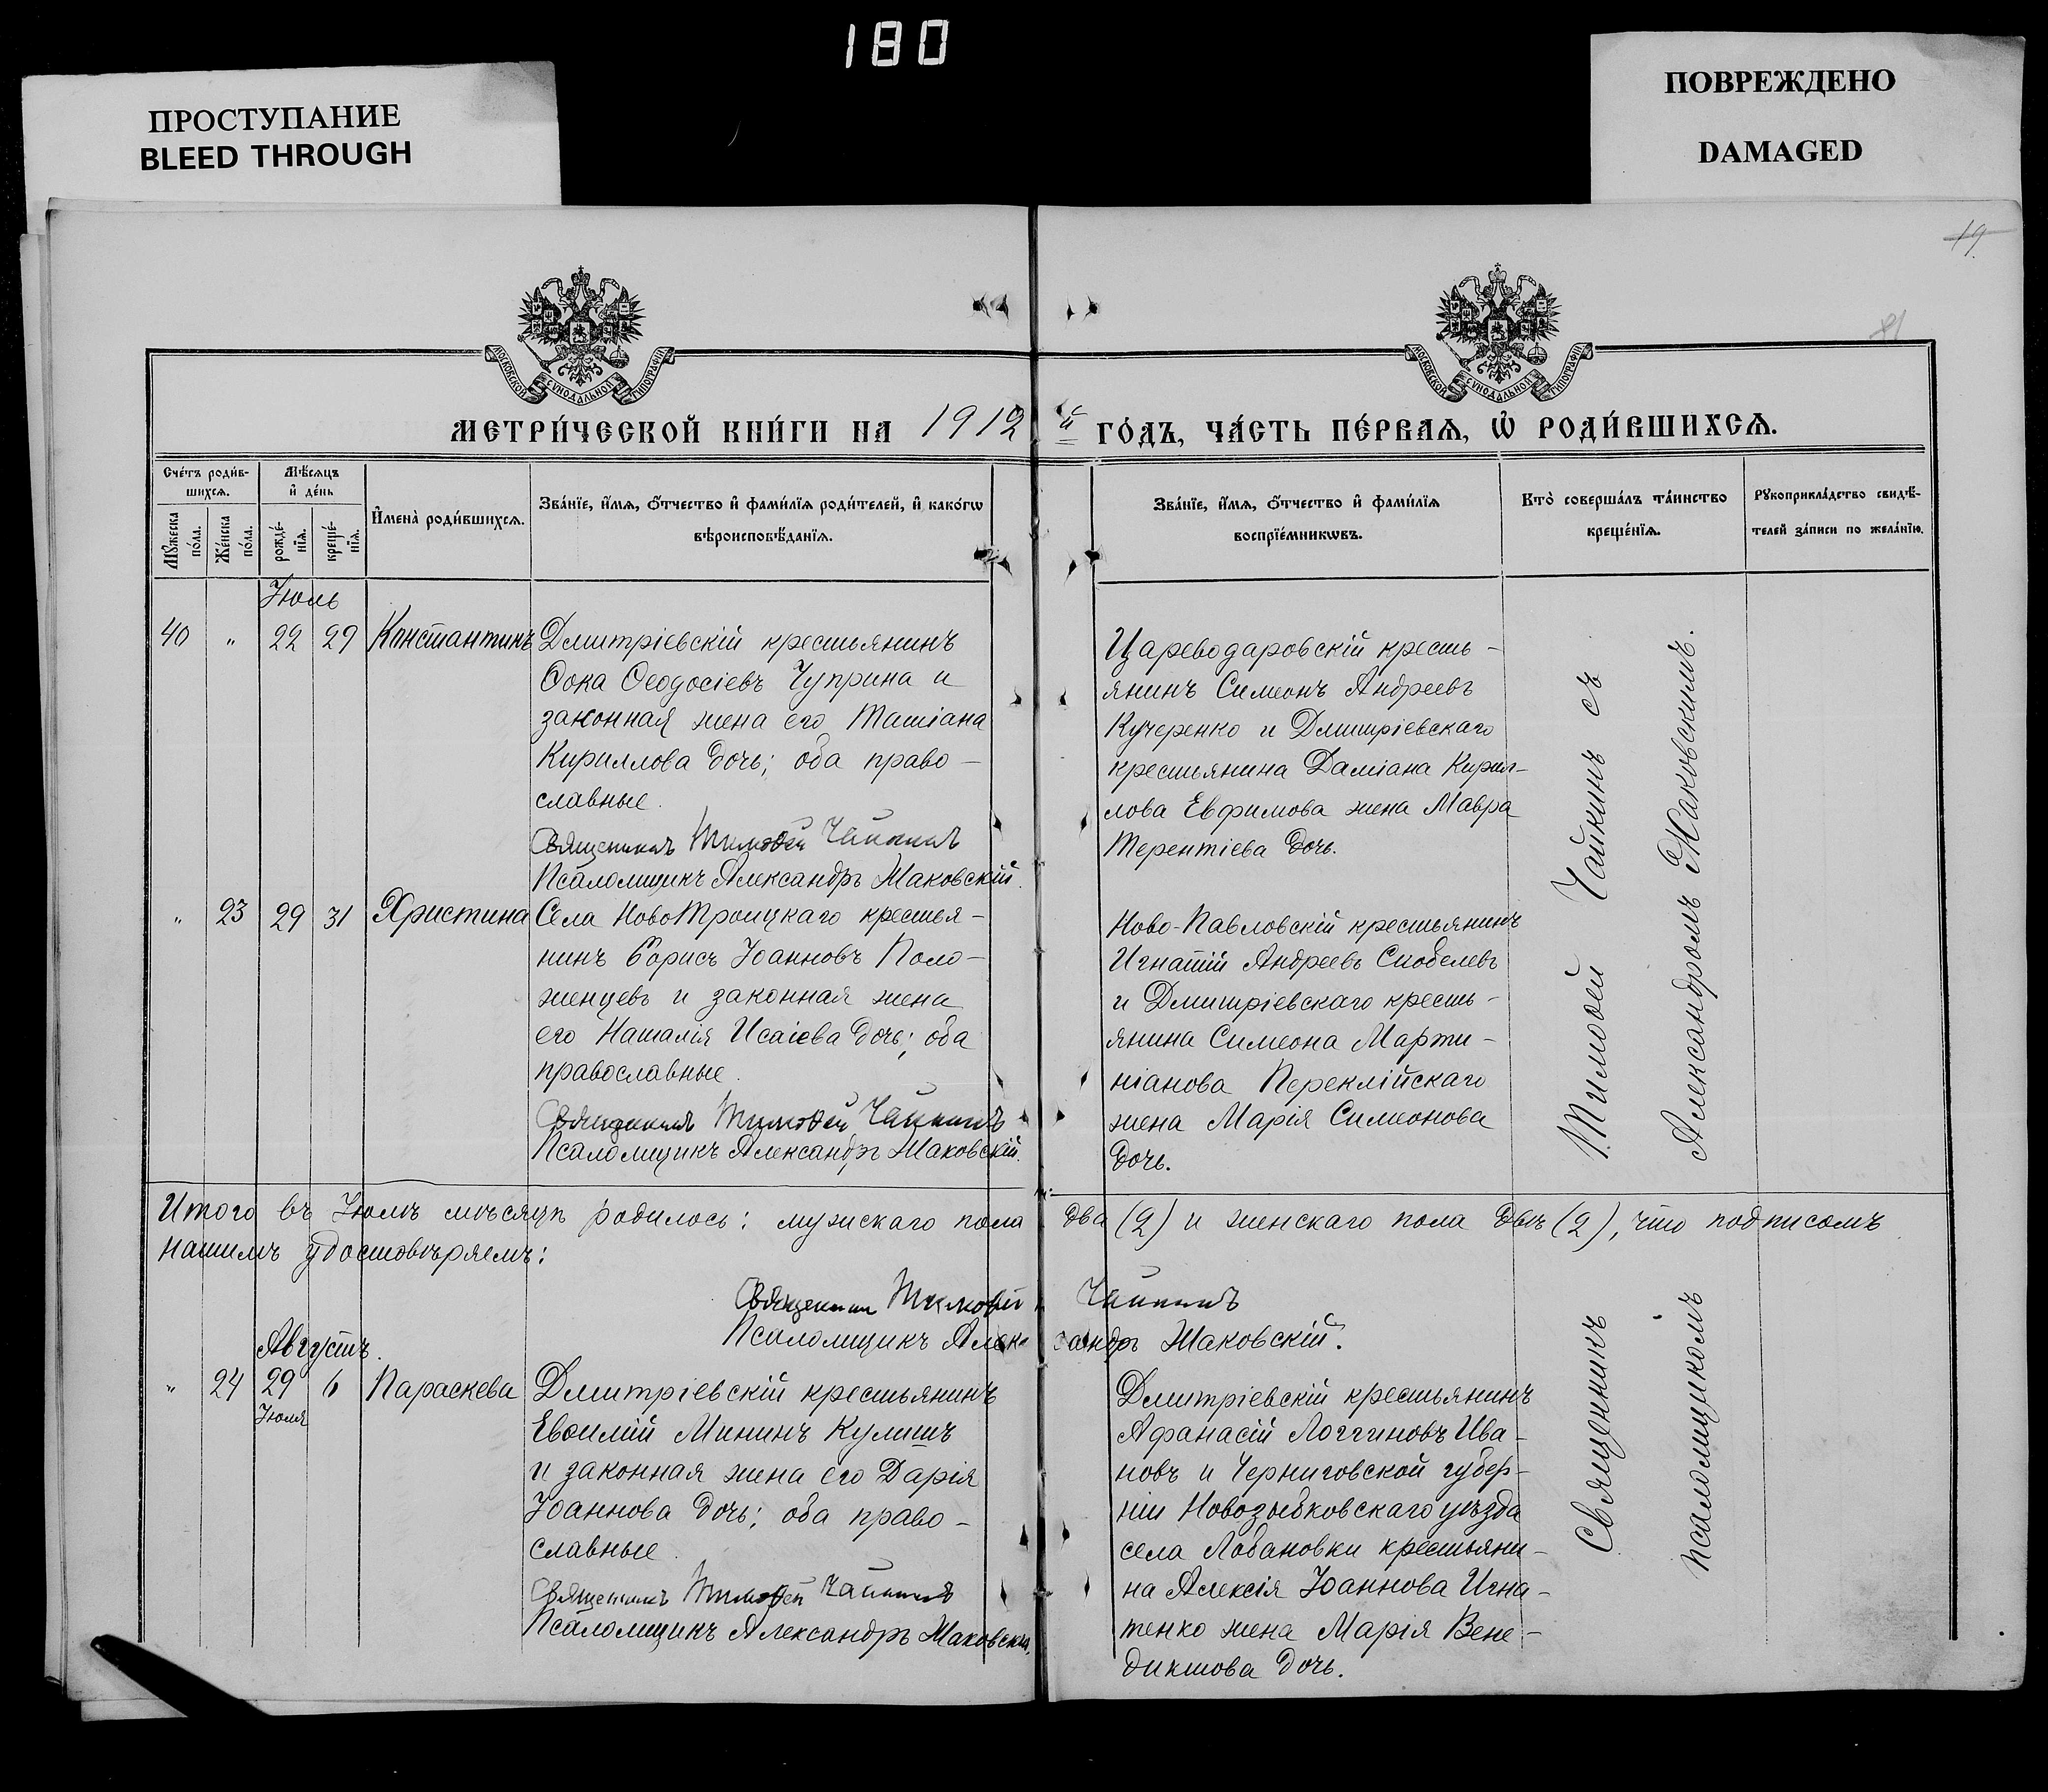 180
ПРОСТУПАНИЕ
BLEED THROUGH
ПОВРЕЖДЕНО
DAMAGED
19
81
МОСКОВСКОЙ СѴНОДАЛЬНОЙ ТИПОГРАФІИ
МОСКОВСКОЙ СѴНОДАЛЬНОЙ ТИПОГРАФІИ
МЕТРИ́ЧЕСКОЙ КНИ́ГИ НА 1912 й ГО́ДЪ, ЧА́СТЬ ПЕ́РВАЯ, Ѡ РОДИ́ВШИХСЯ.
Сче́тъ роди́в-
шихся.
Мѣ́сяцъ
и де́нь
Мꙋ́жеска
по́ла.
Же́нска
по́ла.
рожде́-
нїя.
креще́-
нїя.
И҆мена̀ роди́вшихся.
Зва́нїе, и҆́мя, ѻ҆́тчество и҆ фами́лїя роди́телей, и҆ како́гѡ
вѣроисповѣ́данїя.
Зва́нїе, и҆́мя, ѻ҆́тчество и҆ фами́лїя
воспрїе́мникѡвъ.
Кто̀ соверша́лъ та́инство
креще́нїя.
Рꙋкоприкла́дство свидѣ́-
телей за́писи по жела́нїю.
Іюль
40 " 22 29 Константинъ
Дмитріевскій крестьянинъ
Ѳока Ѳеодосіевъ Чуприна и
законная жена его Татіана
Кириллова дочь; оба право-
славные.
Священникъ Тимоѳей Чайкинъ
Псаломщикъ Александръ Жаковскій.
Цареводаровскій кресть-
янинъ Симеонъ Андреевъ
Кучеренко и Дмитріевскаго
крестьянина Даміана Кирил-
лова Евфимова жена Мавра
Терентіева дочь.
" 23 29 31 Христина
Села НовоТроицкаго крестья-
нинъ Борисъ Іоанновъ Поло-
женцевъ и законная жена
его Наталія Исаіева дочь; оба
православные.
Священникъ Тимоѳей Чайкинъ
Псаломщикъ Александръ Жаковскій.
Ново-Павловскій крестьянинъ
Игнатій Андреевъ Скобелевъ
и Дмитріевскаго кресть-
янина Симеона Марти-
ніанова Переклійскаго
жена Марія Симеонова
дочь.
Т. Тимоѳей Чайкинъ съ
Александромъ Жаковскимъ.
Итого въ Іюлѣ мѣсяцѣ родилось: мужскаго пола два (2) и женскаго пола двѣ (2), что подписомъ
нашимъ удостовѣряемъ:
Священникъ Тимоѳей Чайкинъ
Псаломщикъ Александръ Жаковскій.
Августъ.
" 24 29 6 Параскева
Іюля
Дмитріевскій крестьянинъ
Евѳимій Мининъ Кулишъ
и законная жена его Дарія
Іоаннова дочь; оба право-
славные.
Священникъ Тимоѳей Чайкинъ
Псаломщикъ Александръ Жаковскій.
Дмитріевскій крестьянинъ
Афанасій Логгиновъ Ива-
новъ и Черниговской губер-
ніи Новозыбковскаго уѣзда
села Лобановки крестьяни-
на Алексія Іоаннова Игна-
тенко жена Марія Вене-
диктова дочь.
Священникъ
псаломщикомъ